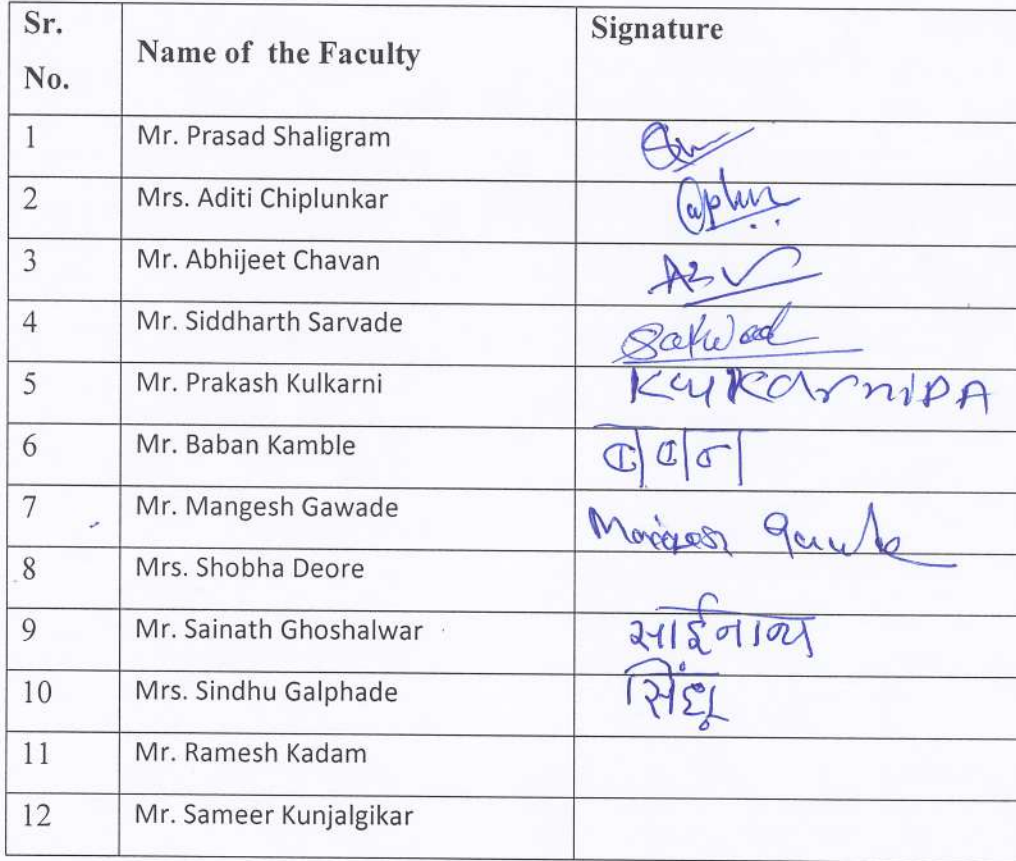 Sr. No. Name of the Faculty Signature
1 Mr. Prasad Shaligram
2 Mrs. Aditi Chiplunkar
3 Mr. Abhijeet Chavan
4 Mr. Siddharth Sarvade
5 Mr. Prakash Kulkarni
6 Mr. Baban Kamble बबन
7 Mr. Mangesh Gawade
8 Mrs. Shobha Deore
9 Mr. Sainath Ghoshalwar साईनाथ
10 Mrs. Sindhu Galphade सिंधू
11 Mr. Ramesh Kadam
12 Mr. Sameer Kunjalgikar